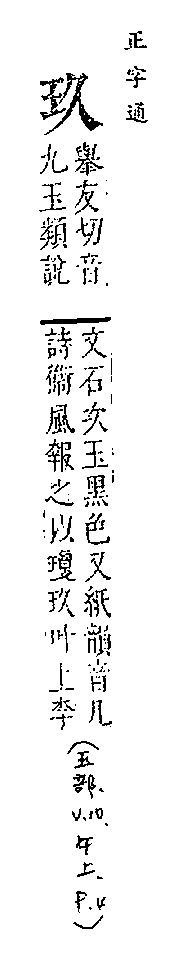 正字通
玖
舉友切音
九玉類說
文石次玉黑色又紙韻音几
詩衞風報之以瓊玖叶上李
(玉部、V.10. 午上. P.4)